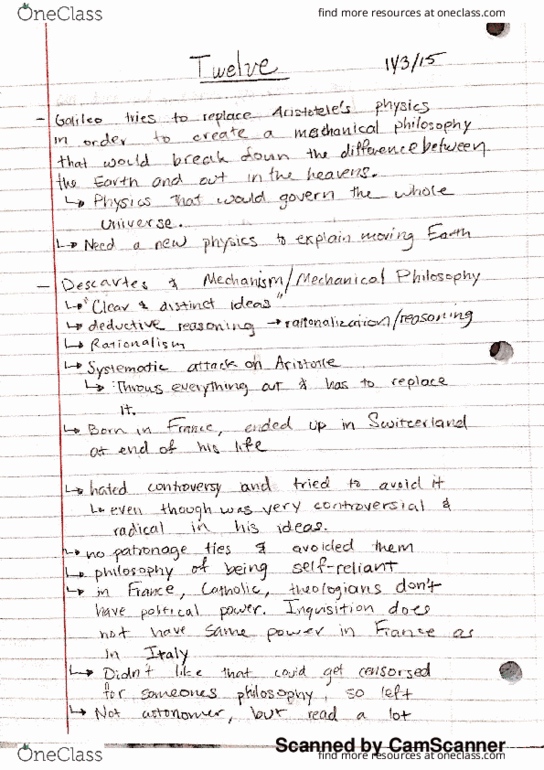 OneClass
find more resources at oneclass.com
Twelve
11/3/15
- Galileo tries to replace Aristotele's physics
in order to create a mechanical philosophy
that would break down the difference between
the Earth and out in the heavens.
↳ Physics that would govern the whole
universe.
↳ Need a new physics to explain moving Earth
- Descartes & Mechanism/Mechanical Philosophy
↳ "Clear & distinct ideas"
↳ deductive reasoning → rationalization/reasoning
↳ Rationalism
↳ Systematic attack on Aristotle
↳ Throws everything out & has to replace
it.
↳ Born in France, ended up in Switzerland
at end of his life
↳ hated controversy and tried to avoid it
↳ even though was very controversial &
radical in his ideas.
↳ no patronage ties & avoided them
↳ philosophy of being self-reliant
↳ in France, Catholic, theologians don't
have political power. Inquisition does
not have same power in France as
in Italy
↳ Didn't like that could get censorsed
for someones philosophy, so left
↳ Not astonomer, but read a lot
Scanned by CamScanner
OneClass
find more resources at oneclass.com